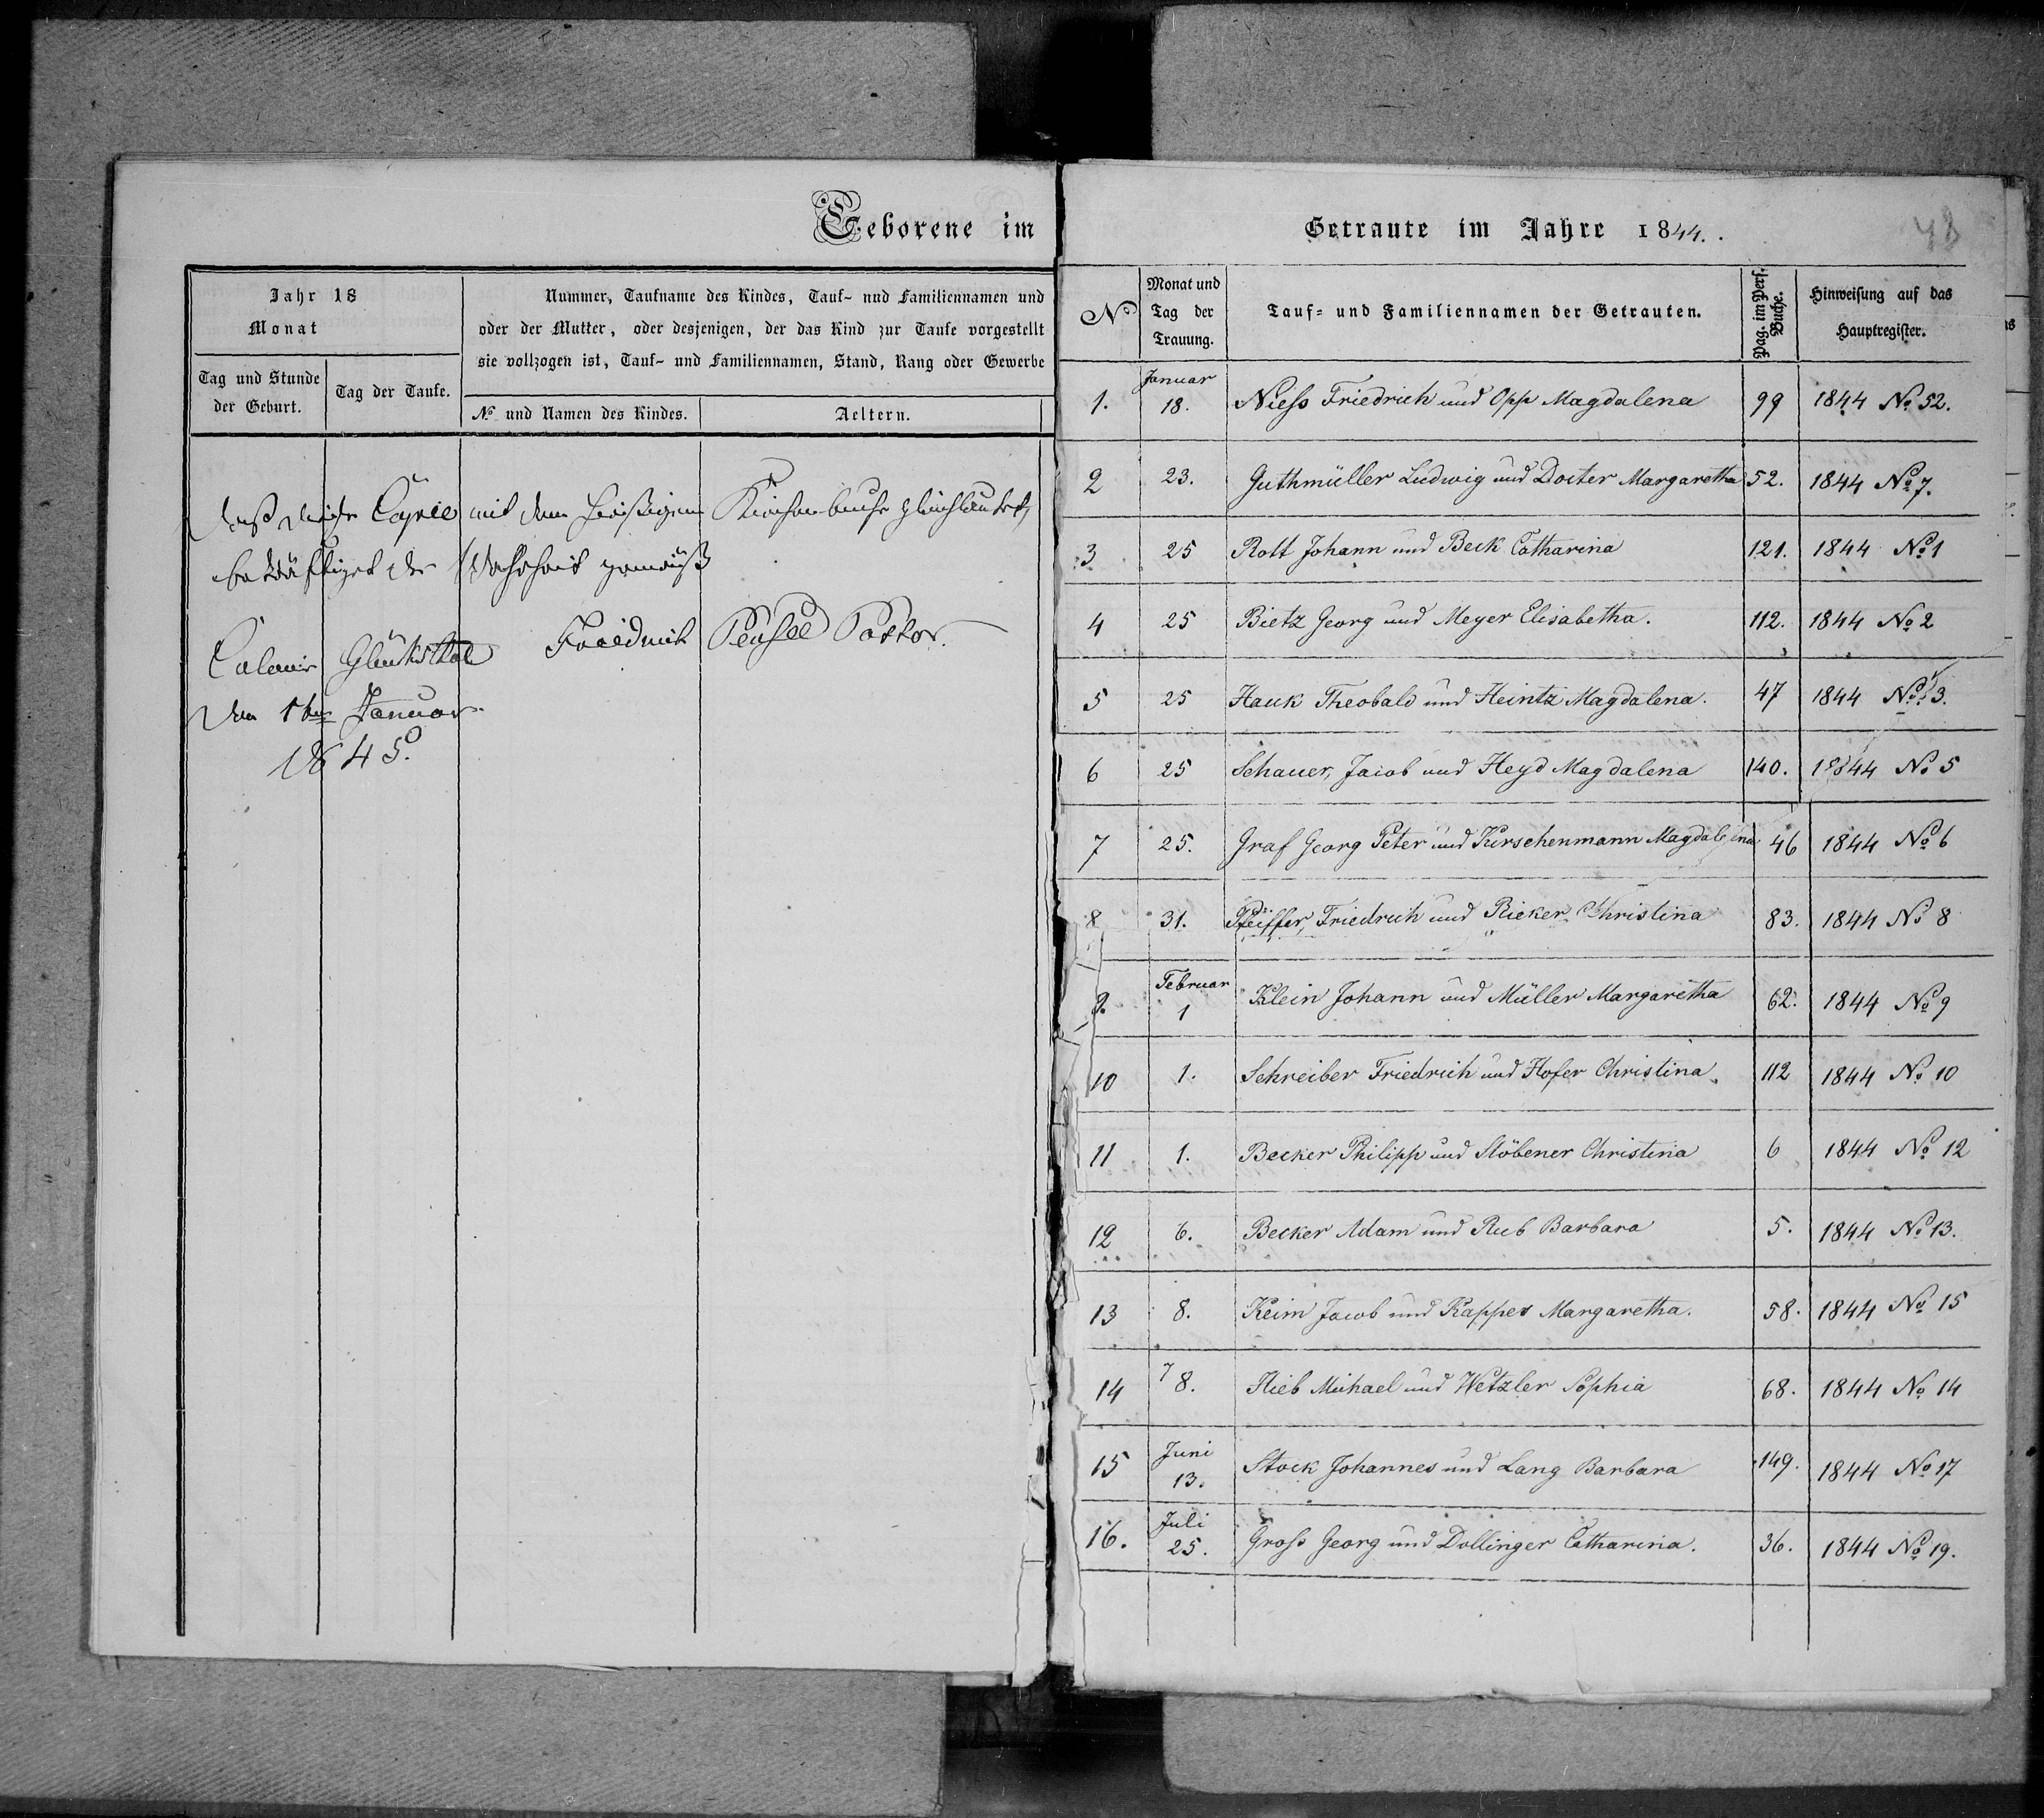 Geborene im
Jahr 18
Monat
Nummer, Taufname des Kindes, Tauf- und Familiennamen und
oder der Mutter, oder desjenigen, der das Kind zur Taufe vorgestellt
sie vollzogen ist, Tauf- und Familiennamen, Stand, Rang oder Gewerbe
Tag und Stunde der Geburt.
Tag der Taufe.
No und Namen des Kindes.
Aeltern.
Daß diese Copie mit dem hiesigen Kirchenbuche gleichlautet,
bekräftiget der Wahrheit gemäß
Friedrich Pensel Pastor.
Colonie Glücksthal
den 1ten Januar
1845.
Getraute im Jahre 1844.
48
No
Monat und Tag der Trauung.
Tauf- und Familiennamen der Getrauten.
Pag. im Pers. Buche.
Hinweisung auf das Hauptregister.
1. Januar 18. Niess Friedrich und Opp Magdalena 99 1844 No 52.
2 23. Guthmüller Ludwig und Docter Margaretha 52. 1844 No 7.
3 25 Rott Johann und Beck Catharina 121. 1844 No 1
4 25 Bietz Georg und Meyer Elisabetha. 112. 1844 No 2
5 25 Hauk Theobald und Heintz Magdalena. 47 1844 No 3.
6 25 Schauer, Jacob und Heyd Magdalena 140. 1844 No 5
7 25. Graf Georg Peter und Kurschenmann Magdalena 46 1844 No 6
8 31. Pfeiffer, Friedrich und Rieker Christina 83. 1844 No 8
9. Februar 1 Klein Johann und Müller Margaretha 62. 1844 No 9
10 1. Schreiber Friedrich und Hofer Christina. 112 1844 No 10
11 1. Becker Philipp und Stöbener Christina 6 1844 No 12
12 6. Becker Adam und Rub Barbara 5. 1844 No 13.
13 8. Keim Jacob und Kappes Margaretha. 58. 1844 No 15
14 8. Hieb Michael und Wetzler Sophia 68. 1844 No 14
15 Juni 13. Stock Johannes und Lang Barbara 149. 1844 No 17
16. Juli 25. Gross Georg und Dollinger Catharina. 36. 1844 No 19.